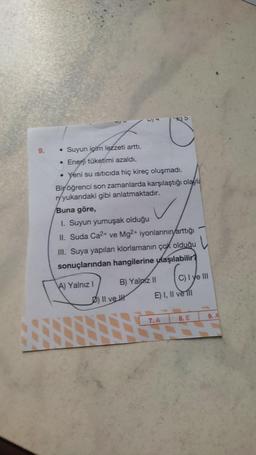 9.
• Suyun içim lezzeti arttı.
• Enerji tüketimi azaldı.
• Yeni su ısıtıcıda hiç kireç oluşmadı.
Bir öğrenci son zamanlarda karşılaştığı olayla
yukarıdaki gibi anlatmaktadır.
Buna göre,
I. Suyun yumuşak olduğu
II. Suda Ca2+ ve Mg2+ iyonlarının arttığı
III. Suya yapılan klorlamanın çok olduğu
sonuçlarından hangilerine ulaşılabilir?
A) Yalnız I
B) Yalnız II
C) I ve III
D) II ve III
E) I, II ve III
7. A
8. E
9. A